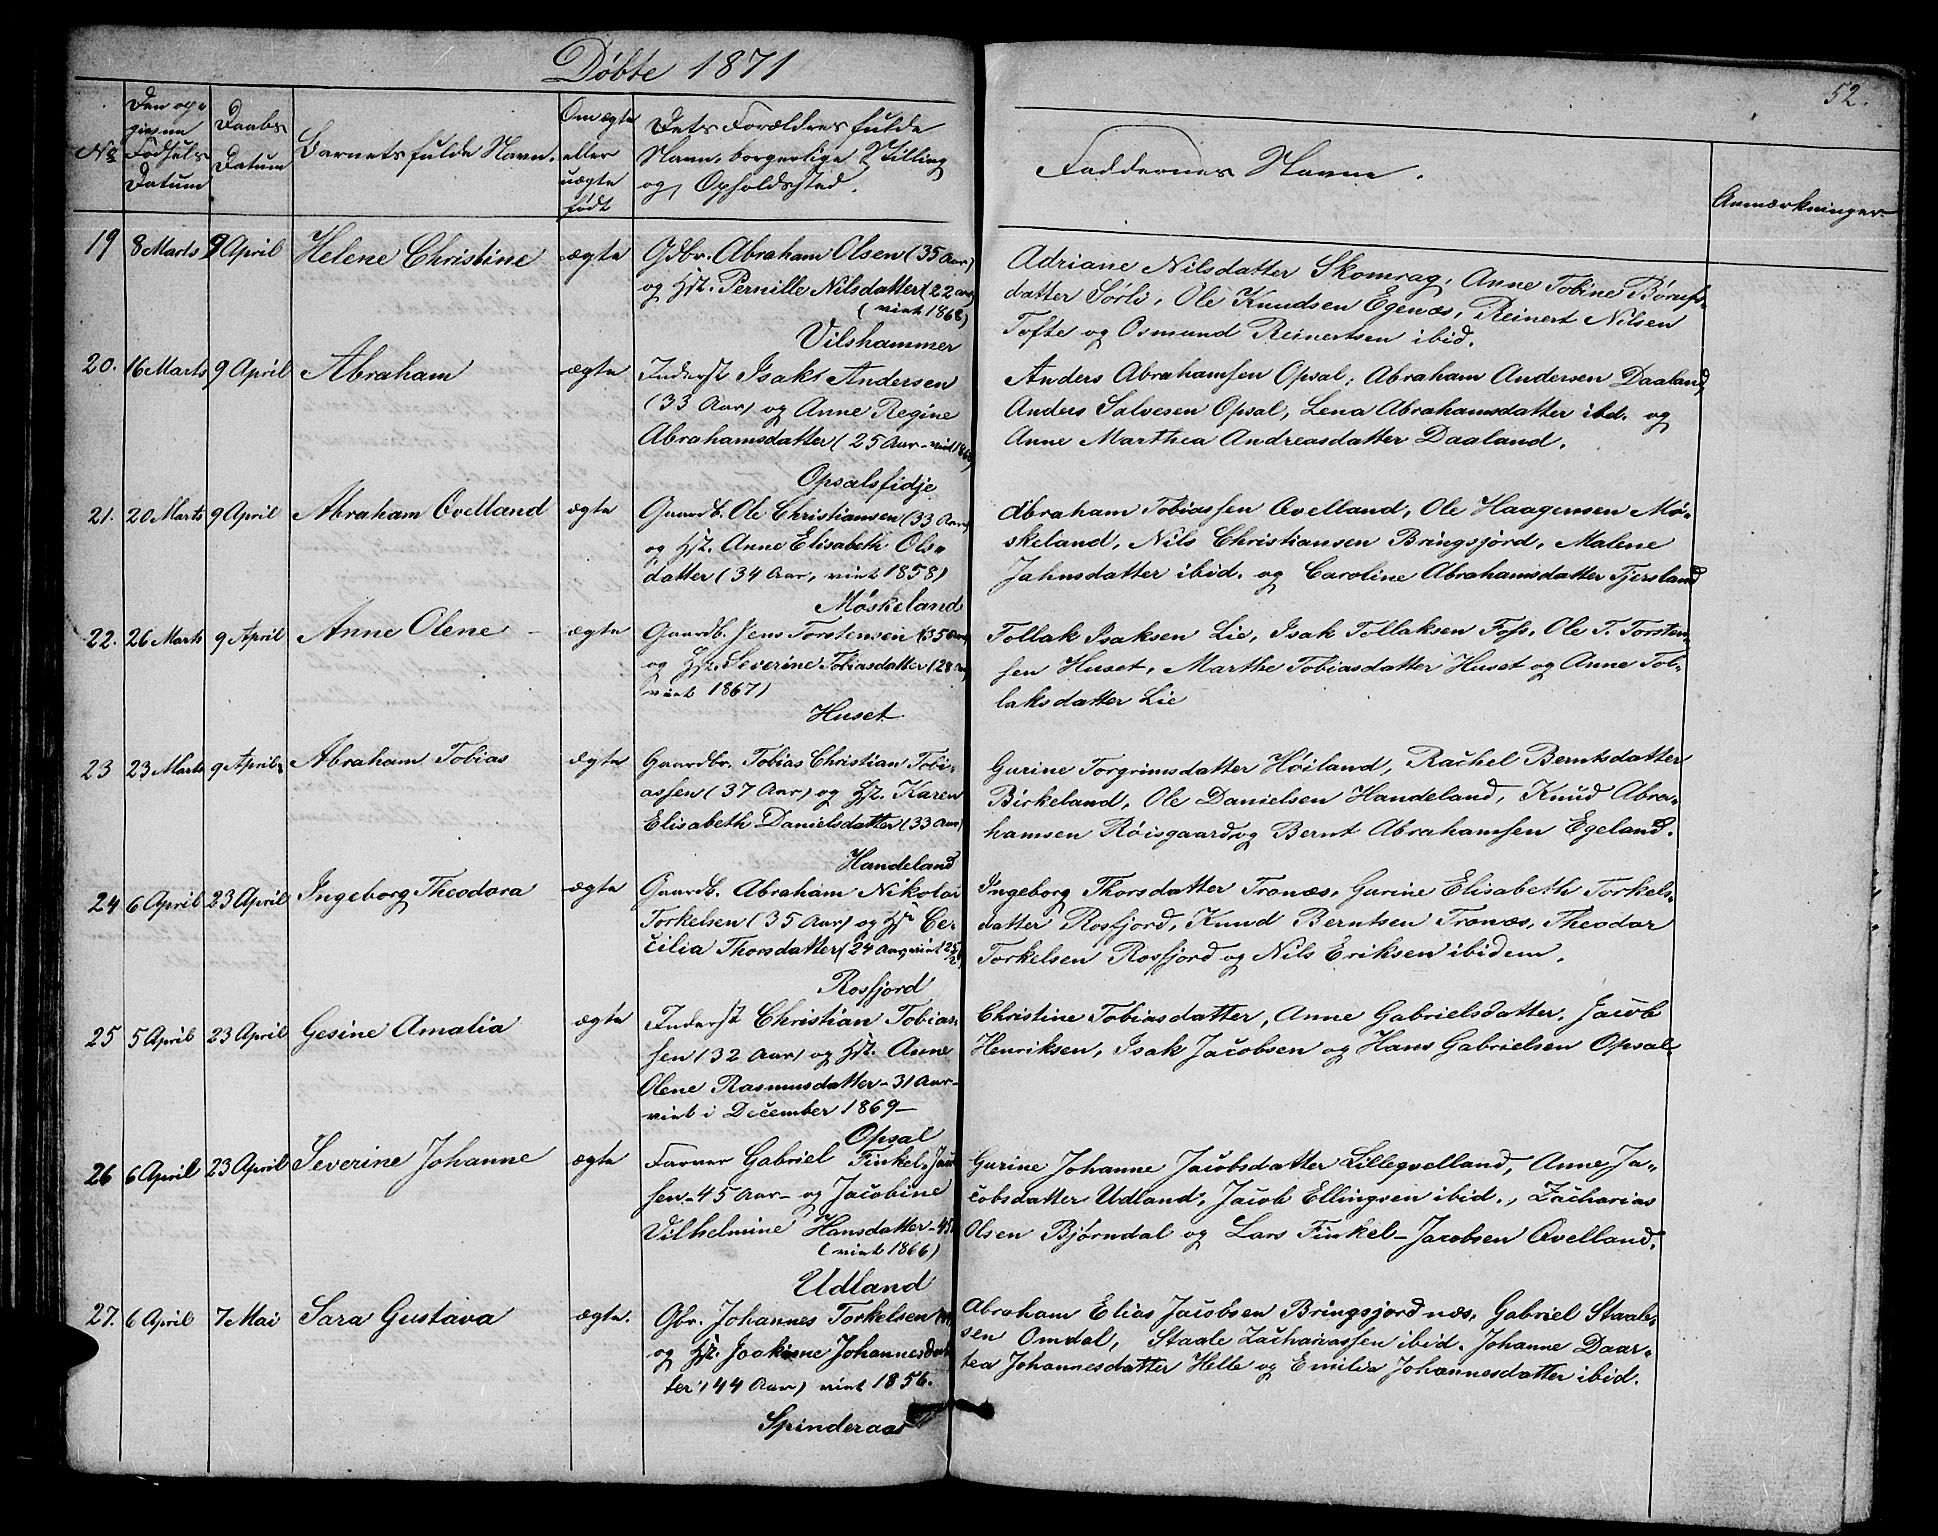 Döbte 1871
52.
No
Den op-
givne
Fødsels
Datum
Daabs
Datum
Barnets fulde Navn.
Om ægte
eller
uægte
født
Dets Forældres fulde
Navn, borgerlige Stilling
og Opholdsted.
Faddernes Navne.
Anmærkninger
19 8 Marts 9 April Helene Christine ægte Gdbr. Abraham Olsen (35 Aar)
og Hst. Pernille Nilsdatter (22 aar)
(viet 1868)
Vilshammer
Adriane Nilsdatter Skomrag, Anne Tobine Børufs-
datter Sørli, Ole Knudsen Egenæs, Reinert Nilsen
Tofte og Osmund Reinertsen ibid.
20. 16 Marts 9 April Abraham ægte Inderst Isak Andersen
(33 Aar) og Anne Regine
Abrahamsdatter (25 Aar - viet
Opsalsfidje
Anders Abrahamsen Opsal, Abraham Andersen Daaland,
Anders Salvesen Opsal, Lena Abrahamsdatter ibd. og
Anne Marthea Andreasdatter Daaland.
21. 20 Marts 9 April Abraham Ovelland ægte Gaardb. Ole Christiansen (33 Aar)
og Hst. Anne Elisabeth Ols-
datter (34 Aar, viet 1858)
Møskeland
Abraham Tobiassen Øvelland, Ole Haagensen Mø-
skeland, Nils Christiansen Bringsjord, Malene
Jahnsdatter ibid. og Caroline Abrahamsdatter Tjersland
22. 26 Marts 9 April Anne Olene - ægte Gaardb. Jens Torstensen (35 Aar)
og Hst. Severine Tobiasdatter (28 Aar)
(viet 1867)
Huset
Tollak Isaksen Lie, Isak Tollaksen Foss, Ole T. Torsten-
sen Huset, Marthe Tobiasdatter Huset og Anne Tol-
laksdatter Lie
23 23 Marts 9 April Abraham Tobias ægte Gaardbr. Tobias Christian Tobi-
assen (37 Aar) og Hst. Karen
Elisabeth Danielsdatter (33 Aar)
Handeland
Gurine Torgrimsdatter Høiland, Rachel Berntsdatter
Birkeland, Ole Danielsen Handeland, Knud Abra-
hamsen Røisgaard og Bernt Abrahamsen Egeland.
24 6 April 23 April Ingeborg Theodora ægte Gaardb. Abraham Nikolai
Torkelsen (35 Aar) og Hst Ce-
cilia Thorsdatter (24 Aar, viet
Rosfjord
Ingeborg Thorsdatter Tronæs, Gurine Elisabeth Torkels-
datter Rosfjord, Knud Berntsen Tronæs, Theodor
Torkelsen Rosfjord og Nils Eriksen ibidem.
25 5 April 23 April Gesine Amalia ægte Inderst Christian Tobias-
sen (32 Aar) og Hst. Anne
Olene Rasmusdatter - 31 Aar -
viet i December 1869 -
Opsal
Christine Tobiasdatter, Anne Gabrielsdatter, Jacob
Henriksen, Isak Jacobsen og Hans Gabrielsen Opsal.
26 6 April 23 April Severine Johanne ægte Farver Gabriel Finkel-Jacob-
sen - 45 Aar - og Jacobine
Vilhelmine Hansdatter - 45
(viet 1866)
Udland
Gurine Johanne Jacobsdatter Lilleqvelland, Anne Ja-
cobsdatter Udland, Jacob Ellingsen ibid., Zacharias
Olsen Bjørndal og Lars Finkel-Jacobsen Øvelland.
27. 6 April 7 Mai Sara Gustava ægte. Gbr. Johannes Torkelsen
og Hst. Joakime Johannesdat-
ter (44 Aar) viet 1856.
Spinderaas
Abraham Elias Jacobsen Bringsjordnæs, Gabriel Staale-
sen Omdal, Staale Zachariassen ibid. Johanne Daar-
tea Johannesdatter Helle og Emilie Johannesdatter ibid.